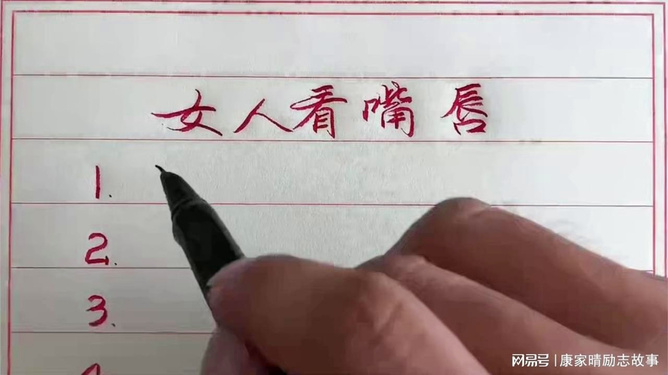 女人看嘴唇
1.
2.
3.
网易号 | 康家晴励志故事